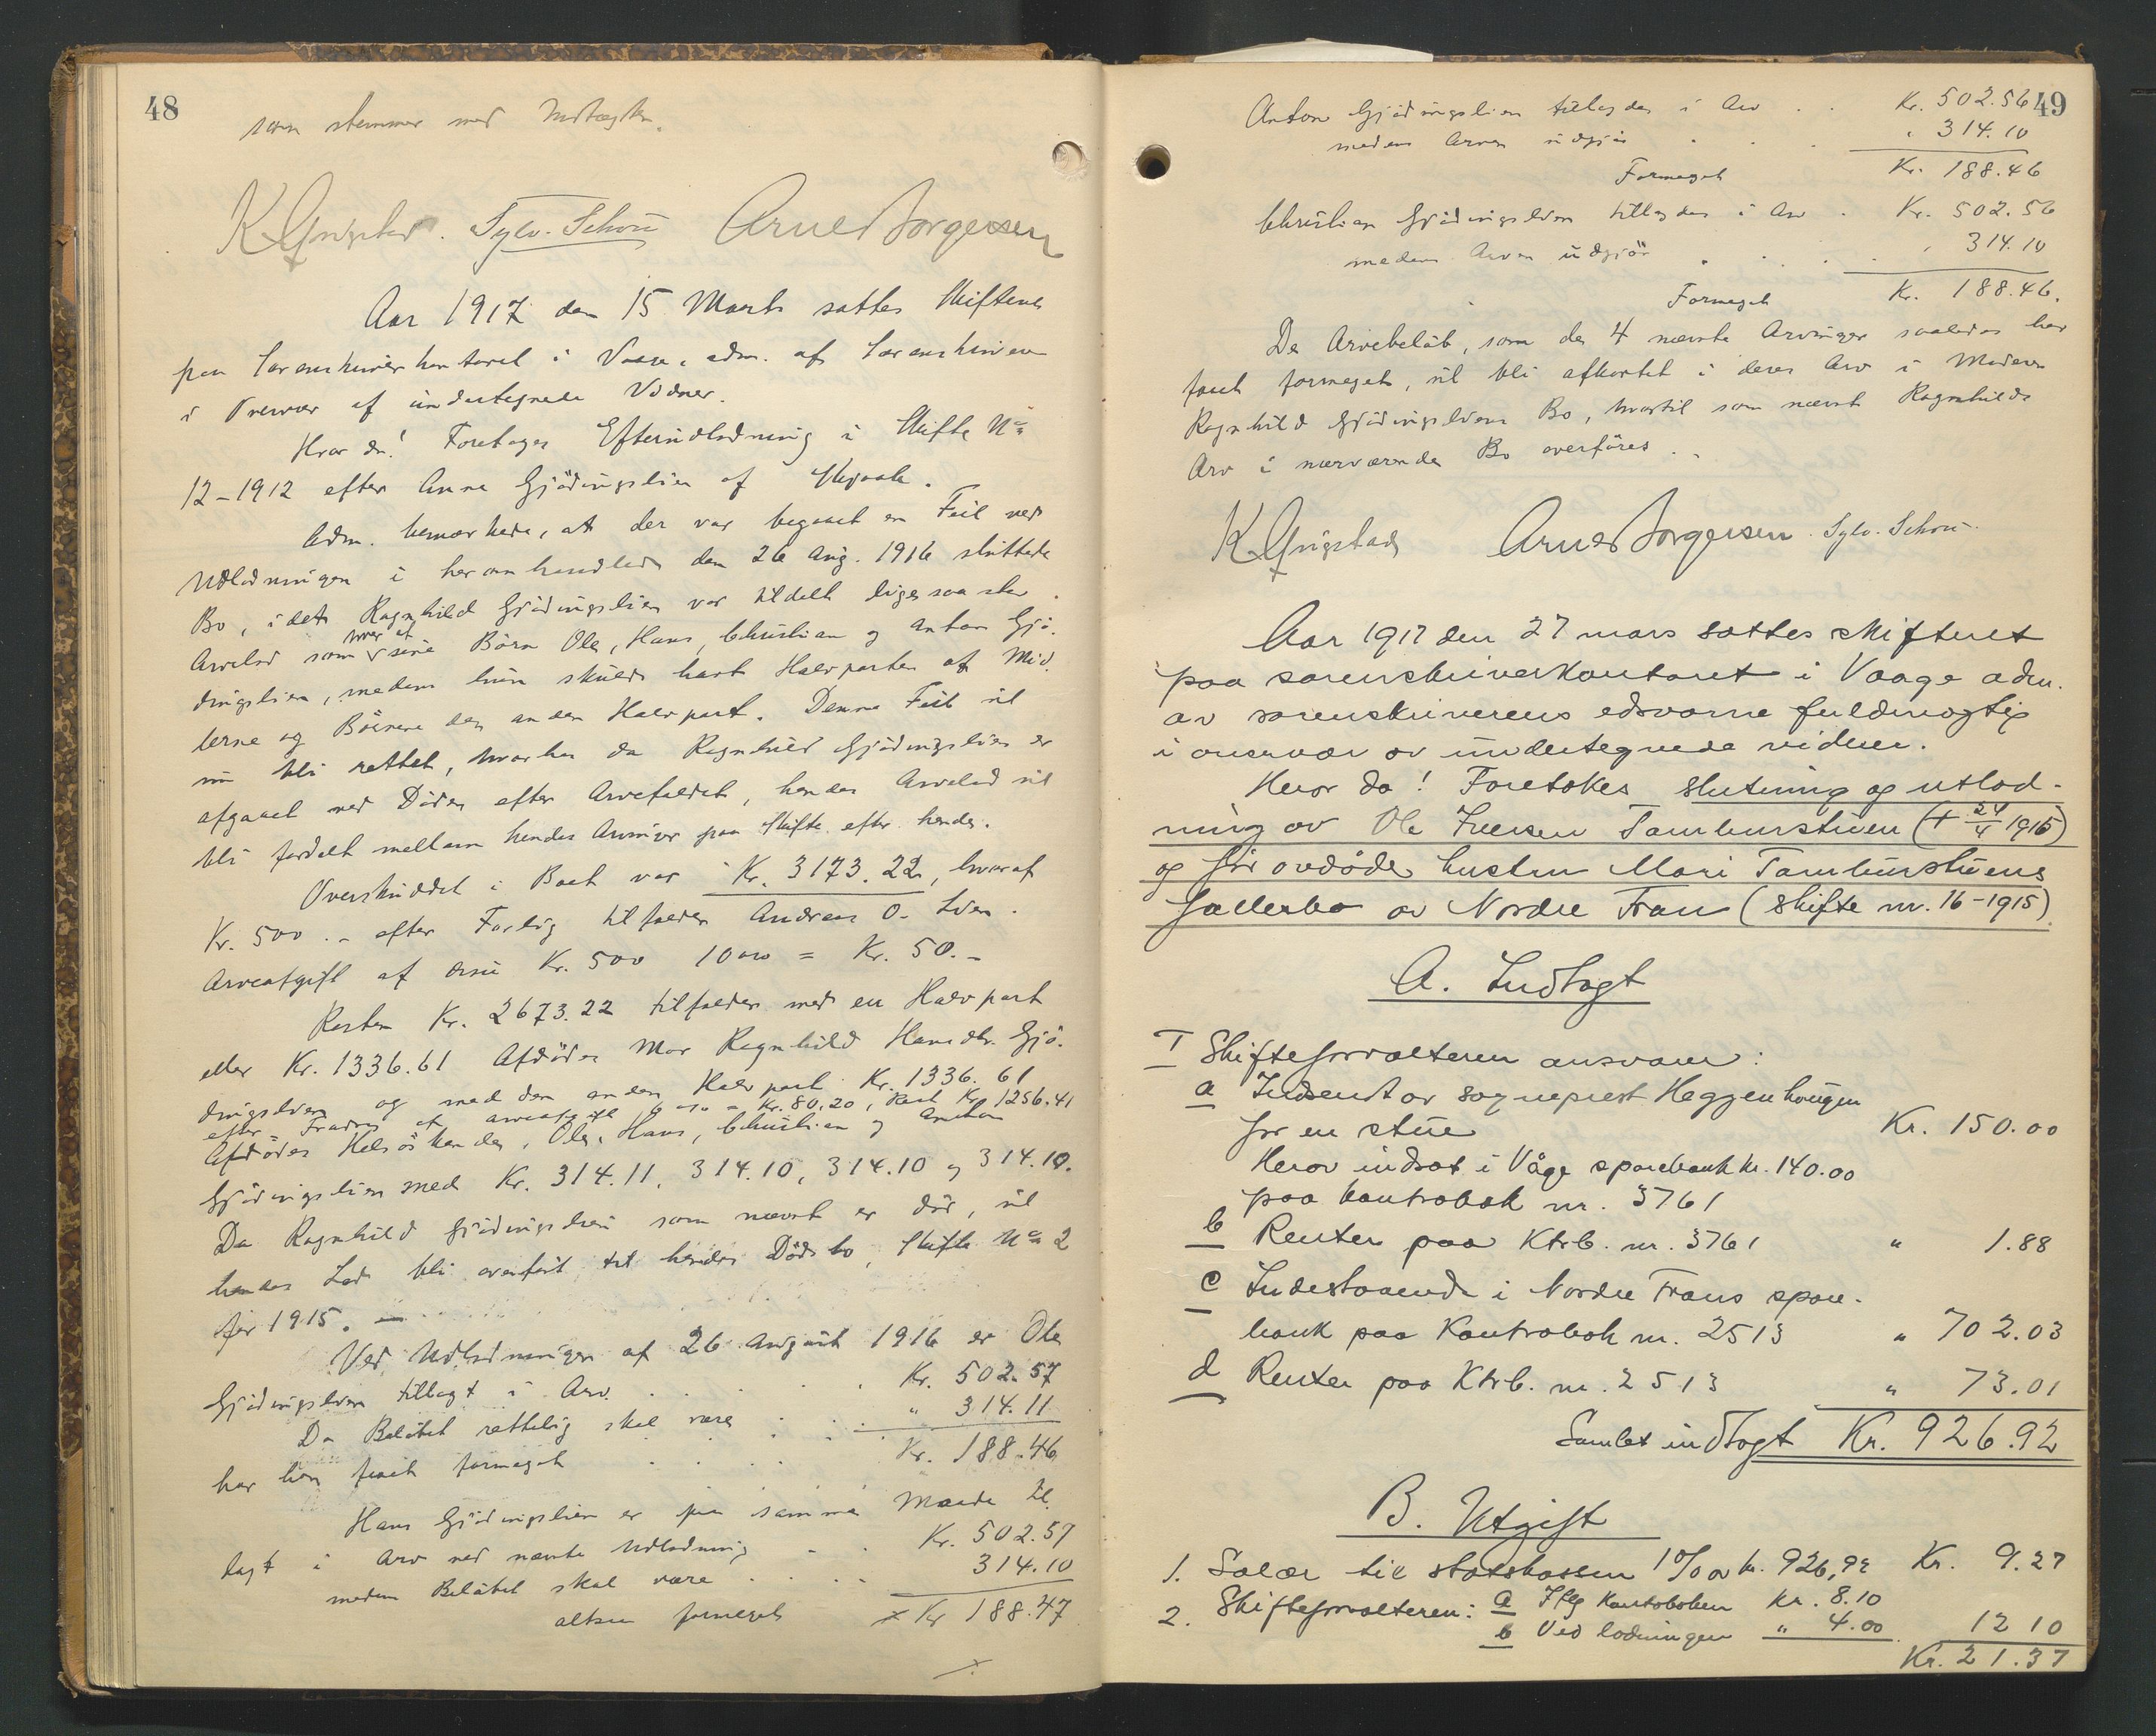 48
som stemmer med Indtægten.
K Ringstad. Sylv. Schou Arne Jørgensen
Aar 1917 den 15 Marts sattes Skifteret
paa Sorenskriverkontoret i Vaage, adm. af Sorenskriveren
i Overvær af undertegnede Vidner.
Hvor da! Foretages Efterudlodning i Skifte No
12-1912 efter Anne Gjødingslien af Skjaak.
Adm. bemærkede, at der var begaaet en Feil ved
Udlodningen i heromhandlede den 26 Aug. 1916 sluttede
Bo, idet Ragnhild Gjødingslien var tildelt ligesaa stor
Arvelod som hver af sine Børn Ole, Hans, Christian og Anton Gjø-
dingslien, medens hun skulde havt Halvparten af Mid-
lerne og Børnene den anden Halvpart. Denne Feil vil
nu bli rettet, hvorhos da Ragnhild Gjødingslien er
afgaaet ved Døden efter Arvefaldet, hendes Arvelod vil
bli fordelt mellem hendes Arvinger paa Skifte efter hende.
Overskuddet i Boet var Kr. 3173.22, hvoraf
Kr. 500.- efter Forlig tilfalder Andreas O. Lien.
Arveafgift af disse Kr. 500 10 o/o = Kr. 50.-
Resten Kr. 2673.22 tilfalder med en Halvpart
eller Kr. 1336.61 Afdødes Mor Ragnhild Hansdtr. Gjø-
dingslien og med den anden Halvpart Kr. 1336.61
efter Fradrag af arveafgift 6 o/o = Kr. 80.20, Rest Kr. 1256.41
Afdødes Helsøskende, Ole, Hans, Christian og Anton
Gjødingslien med Kr. 314.11, 314.10, 314.10 og 314.10.
Da Ragnhild Gjødingslien som nævnt er død, vil
hendes Lod bli overført til hendes Dødsbo, Skifte No 2
for 1915.
Ved Udlodningen af 26 August 1916 er Ole
Gjødingslien tillagt i Arv . . . . Kr. 502.57
Da Beløbet rettelig skal være . . . " 314.11
har han faaet formeget . . . . Kr. 188.46
Hans Gjødingslien er paa samme Maade til-
lagt i Arv ved nævnte Udlodning . . Kr. 502.57
medens Beløbet skal være . . . . 314.10
altsaa formeget Kr 188.47
49
Anton Gjødingslien tillagdes i Arv . . Kr. 502.56
medens Arven udgjør . . . " 314.10
Formeget Kr. 188.46
Christian Gjødingslien tillagdes i Arv . Kr. 502.56
medens Arven udgjør . . . . " 314.10
Formeget Kr. 188.46.
De Arvebeløb, som de 4 nævnte Arvinger saaledes har
faaet formeget, vil bli afkortet i deres Arv i Moderen
Ragnhild Gjødingsliens Bo, hvortil som nævnt Ragnhilds
Arv i nærværende Bo overføres.
K Ringstad Arne Jørgensen Sylv. Schou
Aar 1917 den 27 mars sattes skifteret
paa sorenskriverkontoret i Vaage adm.
av sorenskriverens edsvorne fuldmægtig
i overvær av undertegnede vidner.
Hvor da! Foretokes slutning og utlod-
ning av Ole Iversen Tamburstuen († 24/4 1915)
og før avdøde hustru Mari Tamburstuens
fællesbo av Nordre Fron (skifte nr. 16-1915).
A. Indtægt
I Skifteforvalteren ansvarer:
a Indsendt av sogneprest Heggenhougen
for en stue Kr. 150.00
Herav indsat i Våge sparebank kr. 140.00
paa kontrabok nr. 3761
b Renter paa Ktrb. nr. 3761 " 1.88
c Indestaaende i Nordre Frons spare-
bank paa Kontrabok nr. 2513 " 702.03
d Renter paa Ktrb. nr. 2513 " 73.01
Samlet indtægt Kr. 926.92
B. Utgift
1. Salær til statskassen 1 o/o av kr. 926,92 Kr. 9.27
2. Skifteforvalteren: a Iflg kontoboken Kr. 8.10
b Ved lodningen " 4.00 12 10
Kr. 21.37